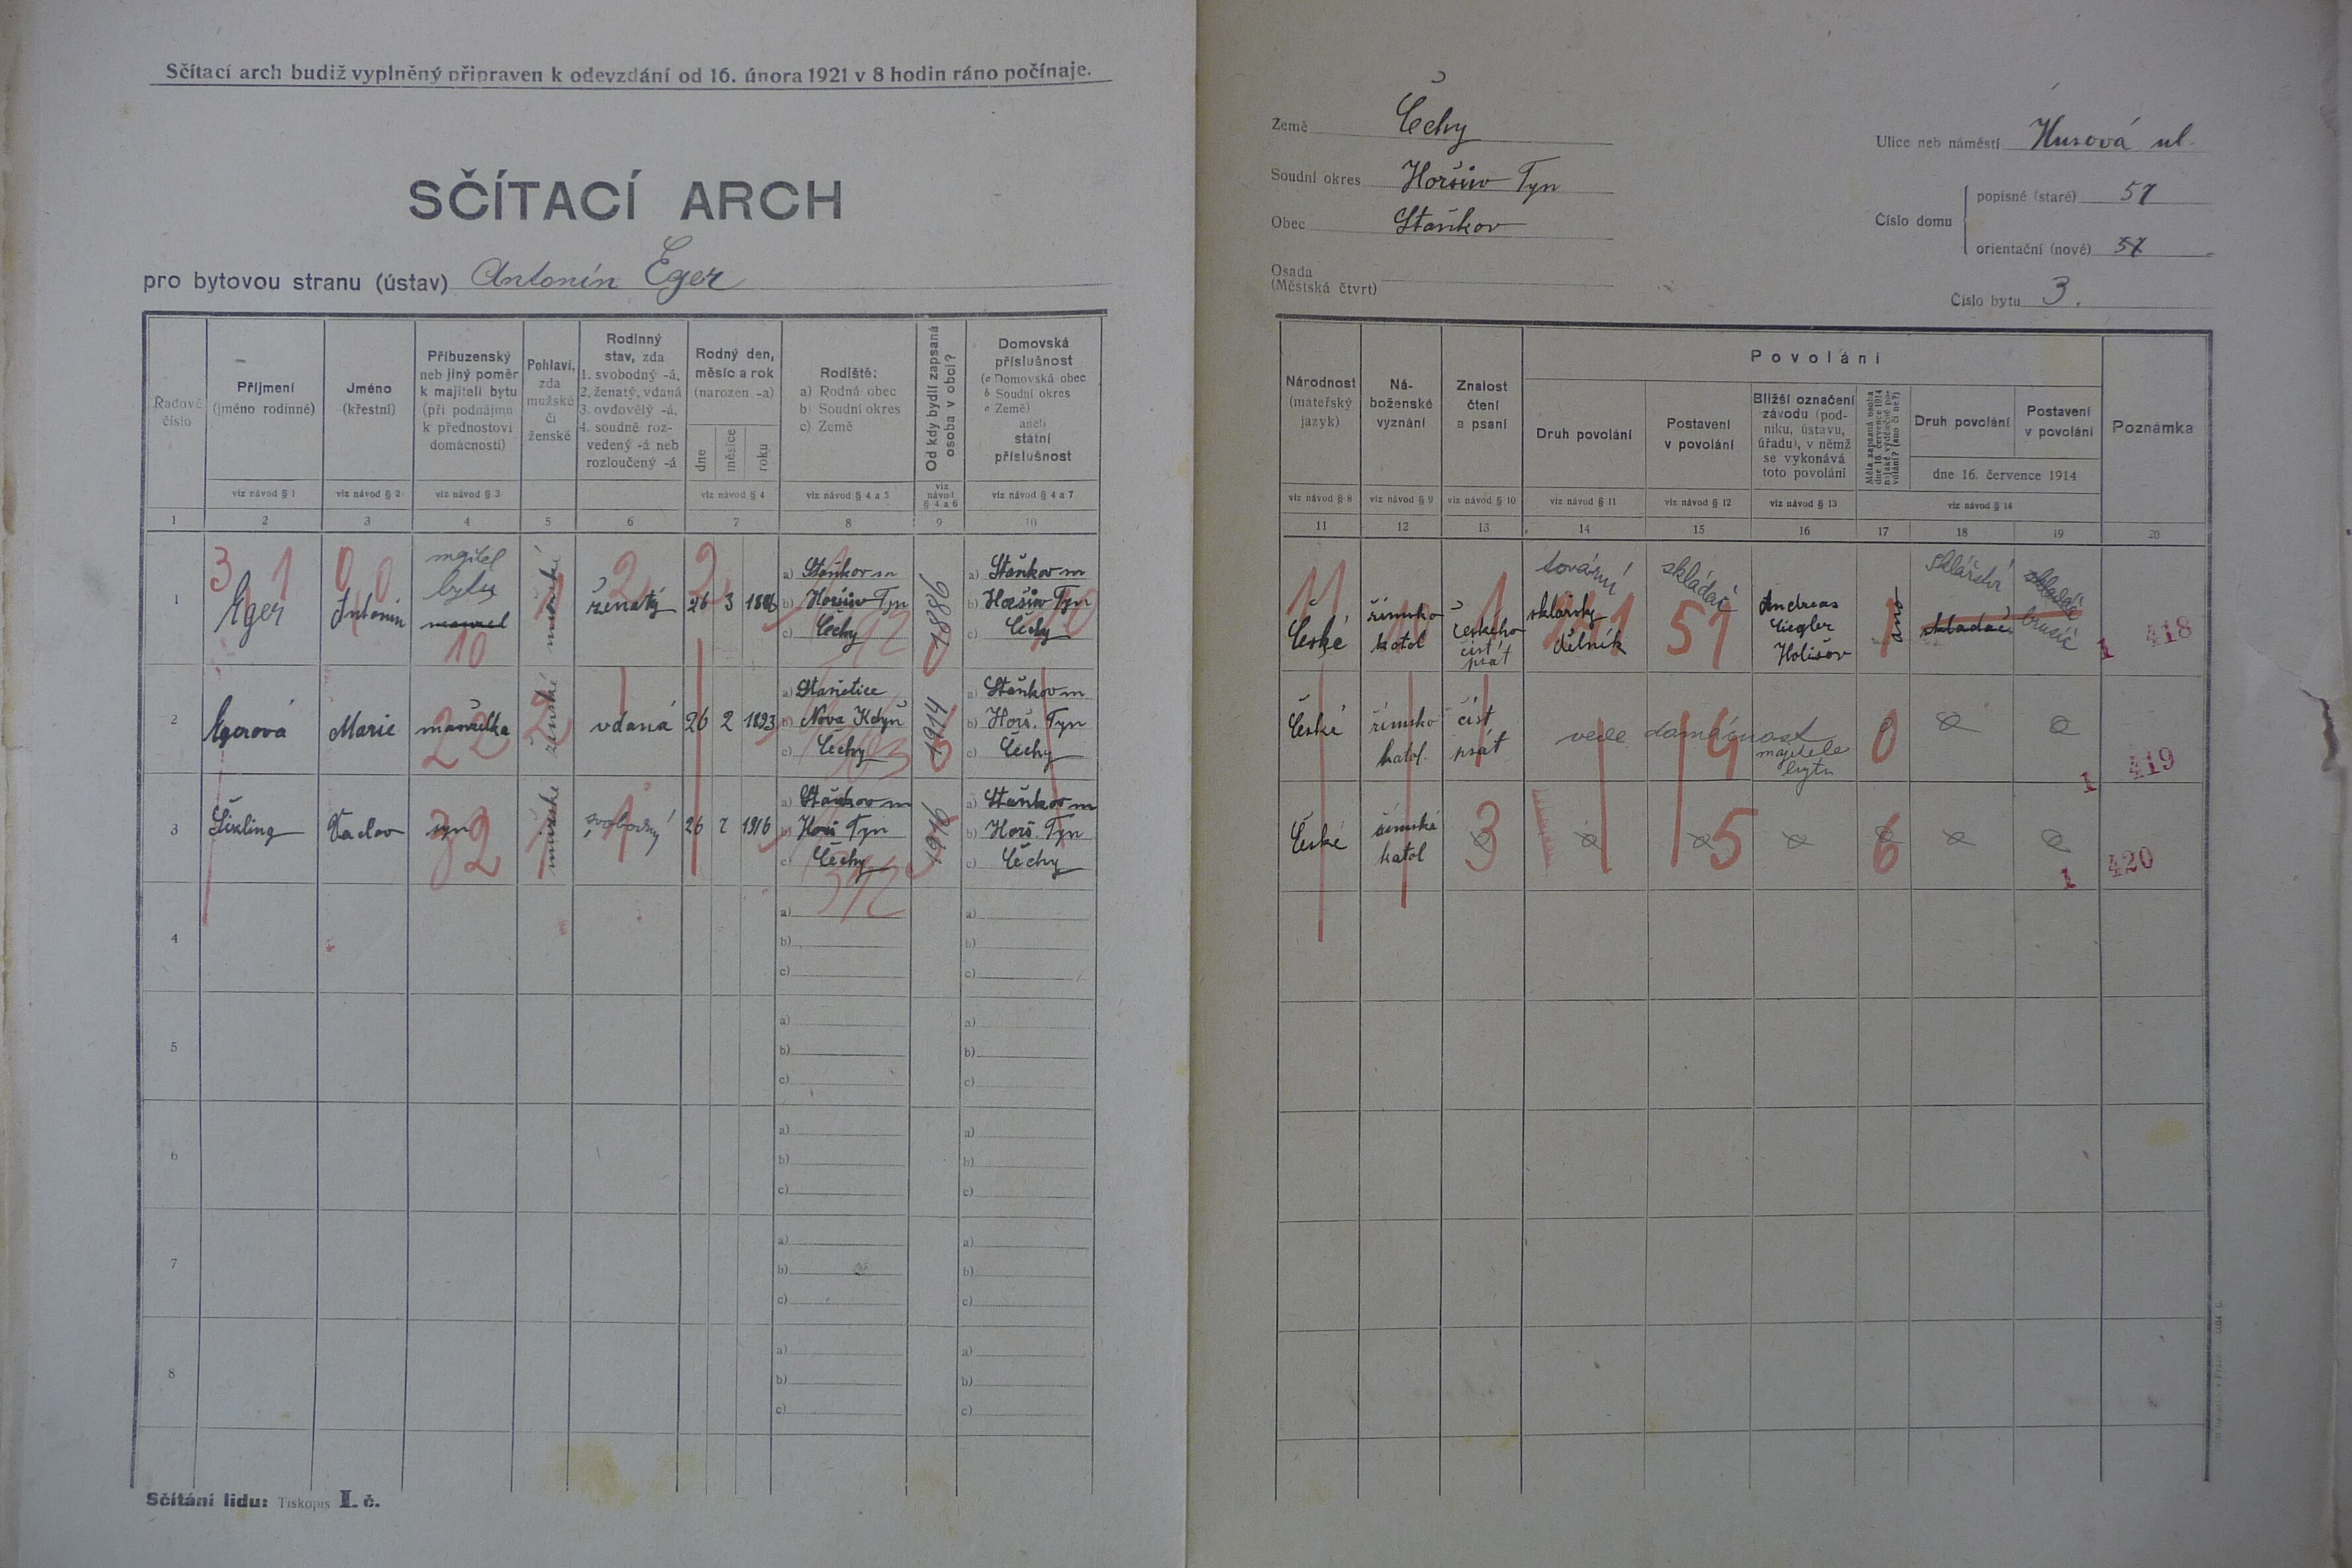 Sčítací arch budiž vyplněný připraven k odevzdání od 16. února 1921 v 8 hodin ráno počínaje.
SČÍTACÍ ARCH
pro bytovou stranu (ústav) Antonín Eger
Země Čechy
Soudní okres Horšův Týn
Obec Staňkov
Osada
(Městská čtvrt)
Ulice neb náměstí Husová ul.
Číslo domu
popisné (staré) 57
orientační (nové) 57
Číslo bytu 3.
Řadové číslo
Příjmení
(jméno rodinné)
Jméno
(křestní)
Příbuzenský
neb jiný poměr
k majiteli bytu
(při podnájmu
k přednostovi
domácnosti)
Pohlaví,
zda
mužské
či
ženské
Rodinný
stav, zda
1. svobodný -á,
2. ženatý, vdaná
3. ovdovělý -á,
4. soudně roz-
vedený -á neb
rozloučený -á
Rodný den,
měsíc a rok
(narozen -a)
dne
měsíce
roku
Rodiště:
a) Rodná obec
b) Soudní okres
c) Země
Od kdy bydlí zapsaná
osoba v obci?
Domovská
příslušnost
(a Domovská obec
b Soudní okres
c Země)
aneb
státní
příslušnost
viz návod § 1
viz návod § 2
viz návod § 3
viz návod § 4
viz návod § 4 a 5
viz návod § 4 a 6
viz návod § 4 a 7
1 2 3 4 5 6 7 8 9 10
Národnost
(mateřský
jazyk)
Ná-
boženské
vyznání
Znalost
čtení
a psaní
Povolání
Druh povolání
Postavení
v povolání
Bližší označení
závodu (pod-
niku, ústavu,
úřadu), v němž
se vykonává
toto povolání
Měla zapsaná osoba
dne 16. července 1914
nějaké výdělečné po-
volání? (ano či ne?)
Druh povolání
Postavení
v povolání
dne 16. července 1914
Poznámka
viz návod § 8
viz návod § 9
viz návod § 10
viz návod § 11
viz návod § 12
viz návod § 13
viz návod § 14
11 12 13 14 15 16 17 18 19 20
1
3 1
0 0
Eger
Antonín
majitel
bytu
10
mužské
2
ženatý
2
26 3 1886
a) Staňkov m
b) Horšův Týn
c) Čechy
1886
a) Staňkov m
b) Horšův Týn
c) Čechy
11
České
římsko
katol
1
českého
číst
psát
tovární
sklářský
dělník
skládač
51
Andreas
Ziegler
Holišov
ano
sklářství
skladač
skladač
brusič
1 418
2
Egerová
Marie
manželka
22
ženské
2
vdaná
26 2 1893
a) Stanětice
b) Nova Kdyň
c) Čechy
1914
a) Staňkov m
b) Horš. Týn
c) Čechy
České
římsko
katol.
číst
psát
vede domácnost
majitele
bytu
0
1 419
3
Václav
syn
32
mužské
svobodný
1
26 2 1916
a) Staňkov m
b) Horš Týn
c) Čechy
392
1916
a) Staňkov m
b) Horš. Týn
c) Čechy
České
římské
katol
3
5
6
1 420
4
a)
b)
c)
a)
b)
c)
5
a)
b)
c)
a)
b)
c)
6
a)
b)
c)
a)
b)
c)
7
a)
b)
c)
a)
b)
c)
8
a)
b)
c)
a)
b)
c)
Sčítání lidu: Tiskopis I. č.